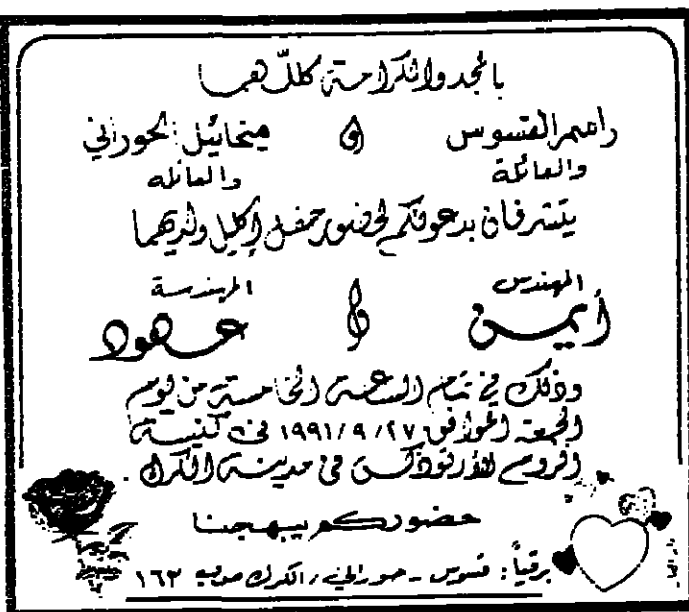 بالمجد والكرامة كللّهما
راضي القسوس و ميخائيل الحوراني
والعائلة والعائله
يتشرفان بدعوتكم لحضور حفل إكليل ولديهما
المهندس المهندسة
أيمن و عهود
وذلك في تمام الساعة الخامسة من يوم
الجمعة الموافق ٢٧/ ٩ /١٩٩١ في كنيسة
الروم الأرثوذكس في مدينة الكرك .
حضوركم يبهجنا
برقياً : قسوس - حوراني ، الكرك ص.ب ١٦٢